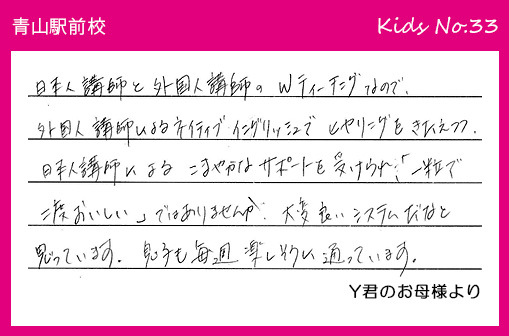 青山駅前校
Kids No.33
日本人講師と外国人講師のWティーチングなので、
外国人講師によるネイティブイングリッシュでヒヤリングをきたえつつ、
日本人講師によるこまやかなサポートを受けられ、「一粒で
二度おいしい」ではありませんが、大変良いシステムだなと
思っています。息子も毎週楽しそうに通っています。
Y君のお母様より